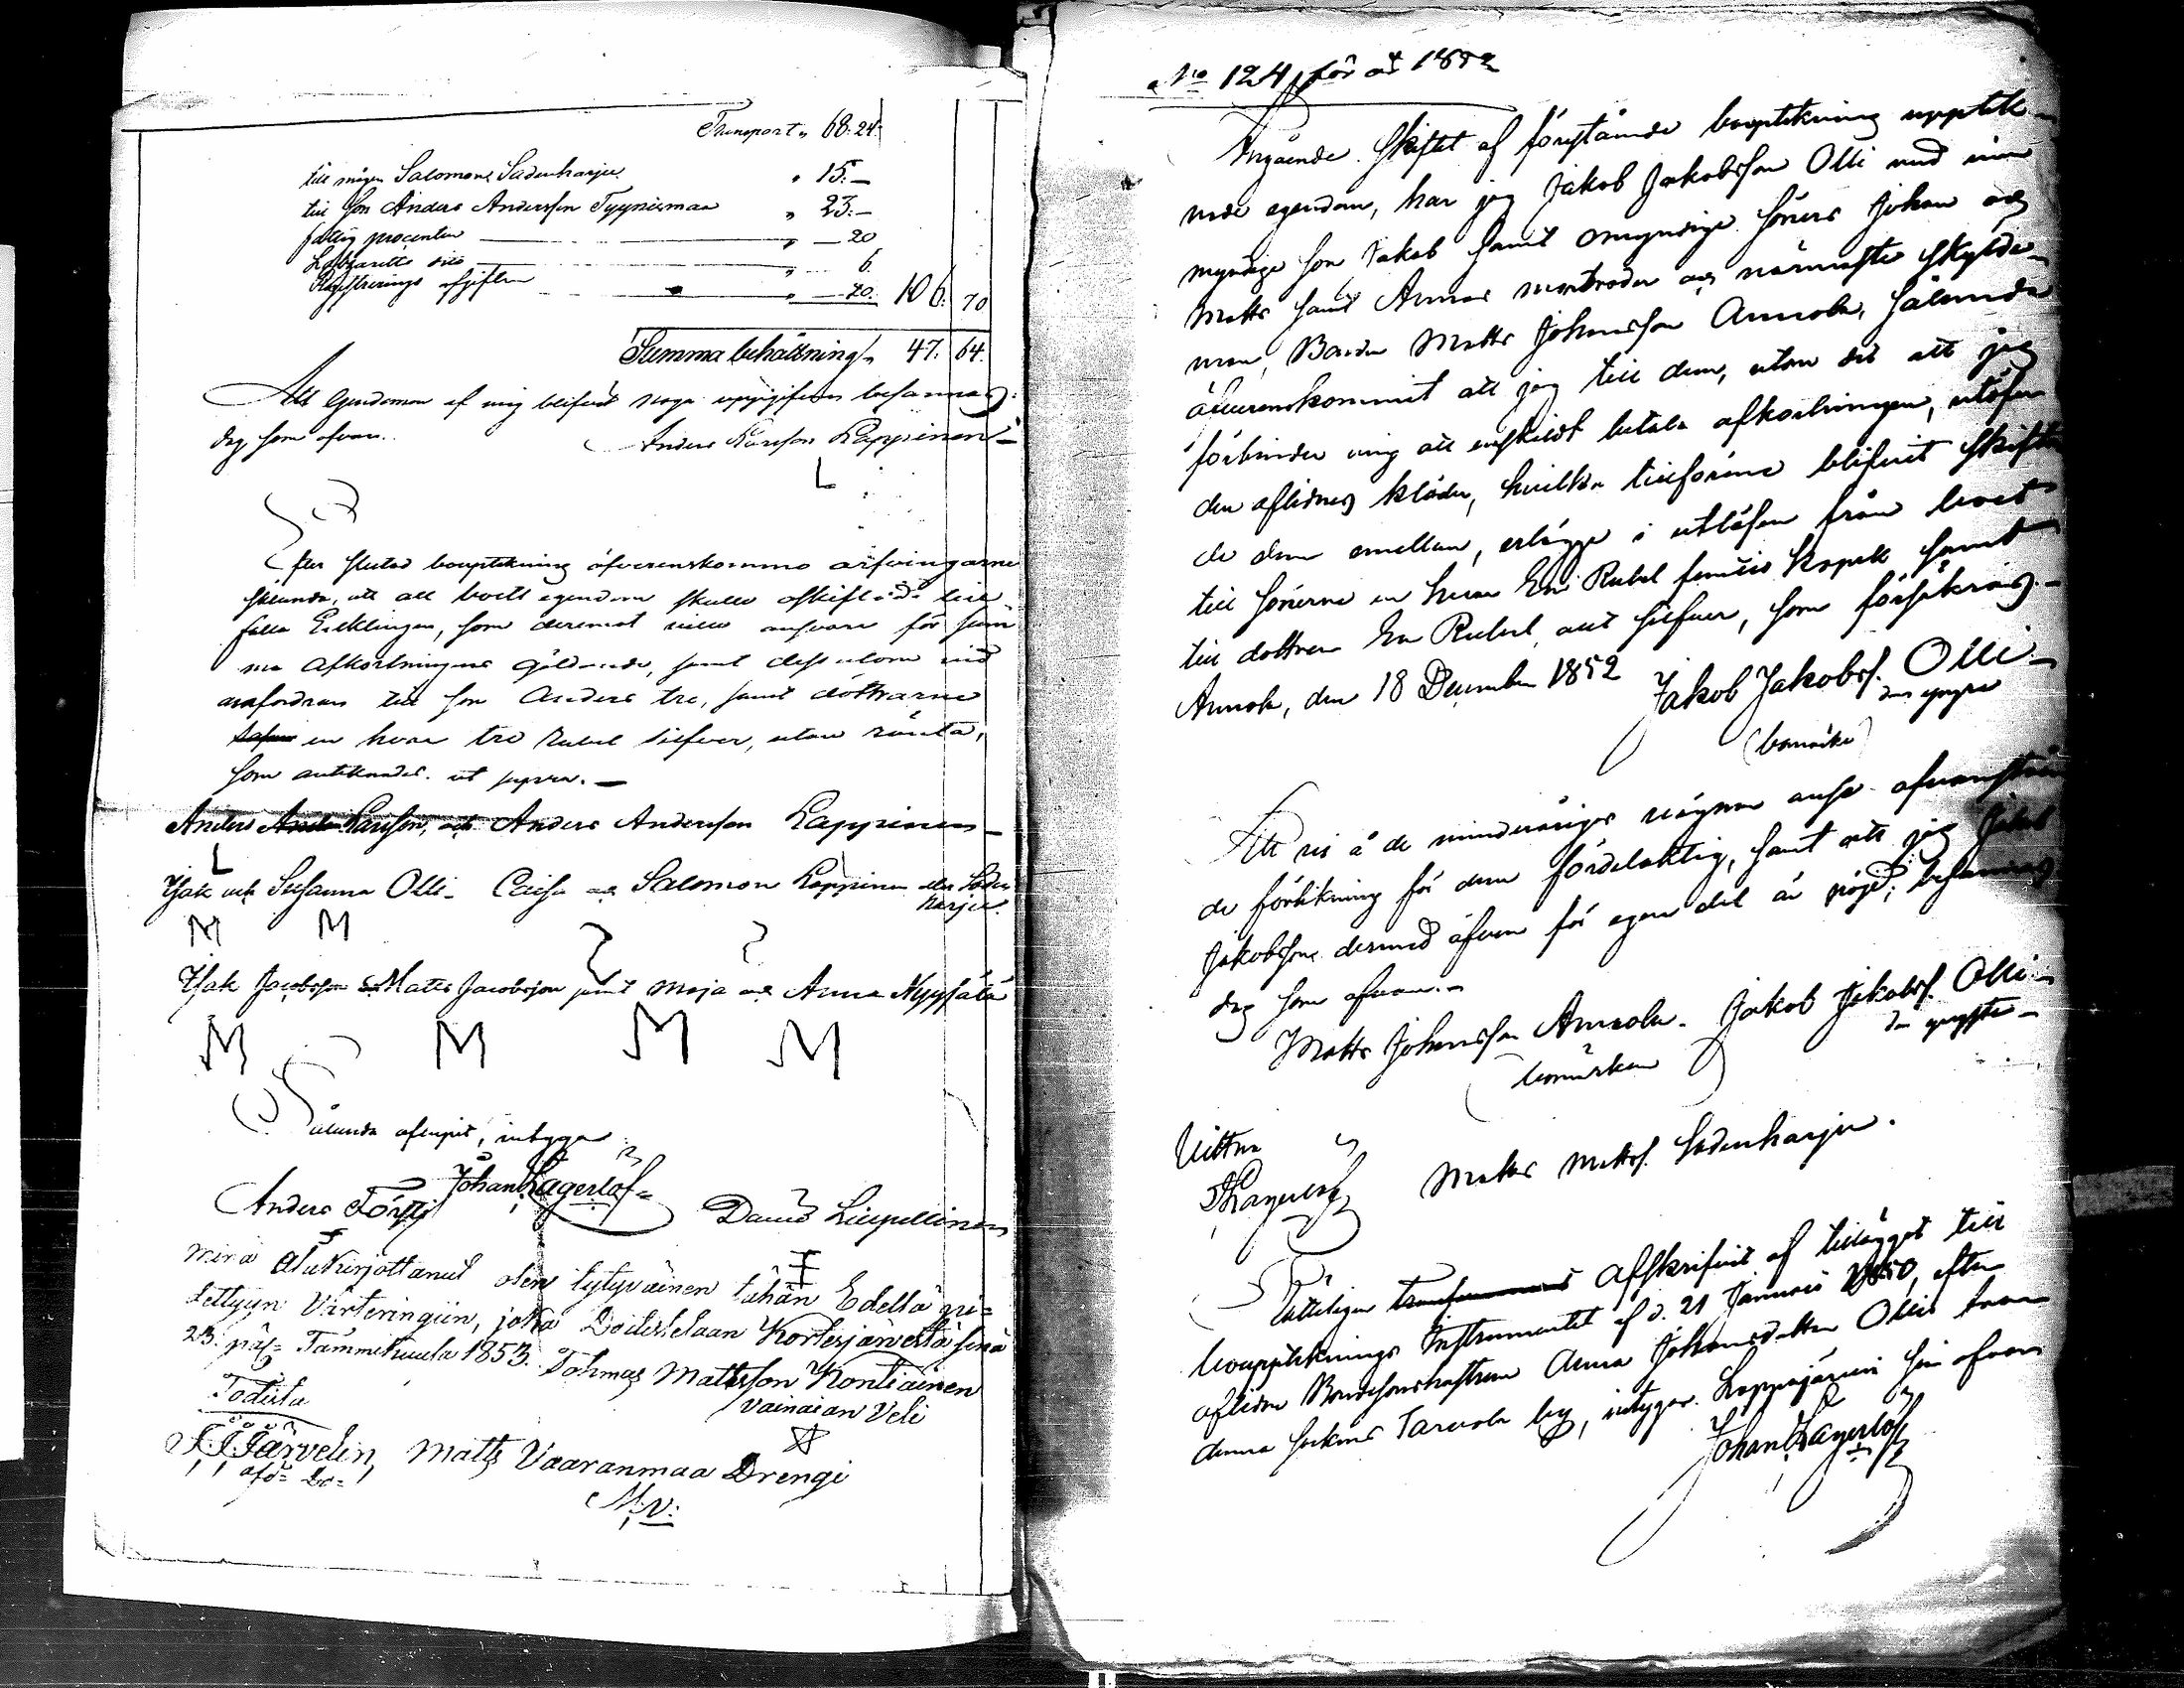 Transport " 68. 24.
till mågen Salomon Sadenharju " 15. —
till Son Anders Andersson Tyynismaa " 23. —
fattig procenten " — 20
Lazaretts dito " — 6.
Registrerings afgiften " — 20. 106. 70
Summa behållning 47. 64.
Att Egendomen af mig blifvit noga uppgifven besannas:
dag som ofvan. Anders Larsson Lappinen
Efter slutad bouptekning öfverenskommo arfvingarne
sålunda, att all boets egendom skulle
falla Enklingen, som deremot ansvara för
afkortningens gäldande, samt dessutom vid
anfordran till Son Anders tre, samt döttrarne
en hvar tre Rubel Silfver, utan ränta,
som antecknades. ut supra. —
Anders Larsson, och Anders Andersson Lappinen —
L
Isak och Susanna Olli — Caisa och Salomon Lappinen eller Saden
harju.
M M
Isak Jacobsson Matts Jacobsson samt Maja och Anna Nyysälä
M M M M
Sålunda aflupit, intyga
Johan Lagerlöf
Anders Törsti David Liupellinen
Minä alukirjottanut olen tytyväinen tähän Edellä
dettyyn Värteringiin, joka Kortesjärvestä sinä
23: Tammikuuta 1853. Tohmas Mattsson Kontiainen
vainaian Veli
Todista
Järvelin, Matts Vaaranmaa Drengi
M. V.
No 124 för år 1852
Angående Skiftet af förestående bouptekning upptek-
nade egendom, har jag Jakob Jakobsson Olli med min
myndige Son Jakob samt omyndige Söners Johan och
Matts samt Annas morbroder och närmaste skylde-
man, Bonden Matts Johansson Annola, sålunda
öfverenskommit att jag till dem, utom det att jag
förbinder mig att enskildt betala afkortningen, utöfver
den aflidnes kläder, hvilka tillförene blifvit skiftade
de dem emellan, erlägge i utlösen från boet
till Sönerne en hvar En Rubel femtio Kopek samt
till dottren En Rubel, allt silfver, som försäkras. —
Annola, den 18 December 1852 Jakob Jakobss. Olli —
den yngre
(bomärke)
Att vi å de minderåriges vägnar anse ofvanståen
de förlikning för dem fördelaktig, samt att jag Jakob
Jakobsson dermed äfven för egen del är nöjd; besannas
dag som ofvan. —
Matts Johansson Annola. Jakob Jakobss. Olli. —
den yngste —
(bomärken)
Vittna
JLagerlöf Matts Mattss. Sadenharju.
Rätteligen afskrifvit af tillägget till
bouppteknings Instrumentet af d. 21 Januari 1850, efter
aflidne Bondesonshustrun Anna Johansdotter Olli från
denna sockens Tarvola by, intygar. Lappajärvi som ofvan
Johan Lagerlöf